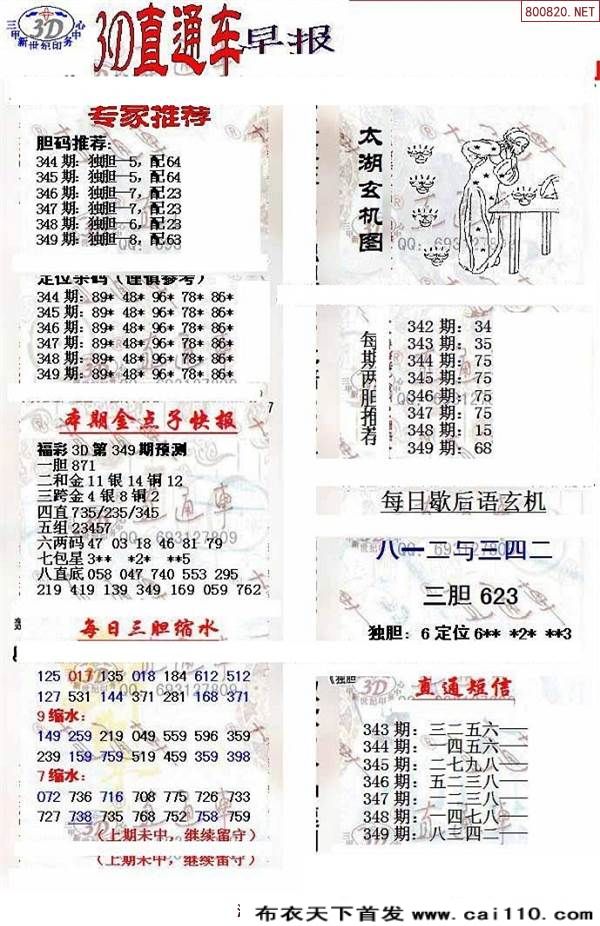 800820.NET
三甲
3D
中心
新世纪印务
3D直通车早报
专家推荐
胆码推荐:
344期:独胆—5,配64
345期:独胆—5,配64
346期:独胆—7,配23
347期:独胆—7,配23
348期:独胆—6,配23
349期:独胆—8,配63
定位杀码(谨慎参考)
344期:89* 48* 96* 78* 86*
345期:89* 48* 96* 78* 86*
346期:89* 48* 96* 78* 86*
347期:89* 48* 96* 78* 86*
348期:89* 48* 96* 78* 86*
349期:89* 48* 96* 78* 86*
本期金点子快报
福彩3D第349期预测
一胆871
二和金11银14铜12
三跨金4银8铜2
四直735/235/345
五组23457
六两码47 03 18 46 81 79
七包星3** *2* **5
八直底058 047 740 553 295
219 419 139 349 169 059 762
每日三胆缩水
125 017 135 018 184 612 512
127 531 144 371 281 168 371
9缩水:
149 259 219 049 559 596 359
239 159 759 519 459 359 398
7缩水:
072 736 716 708 775 726 733
727 738 735 768 752 758 759
(上期未中,继续留守)
(上期未中,继续留守)
太湖玄机图
QQ:693127809
每期两胆推荐
342期:34
343期:35
344期:75
345期:75
346期:75
347期:75
348期:15
349期:68
每日歇后语玄机
八一二与三四二
三胆 623
独胆:6 定位6** *2* **3
(独胆
3D
直通短信
343期:三二五六——
344期:一四五六——
345期:二七九八——
346期:五二三八——
347期:一二三八——
348期:一四七八——
349期:八三四二——
布衣天下首发 www.cai110.com